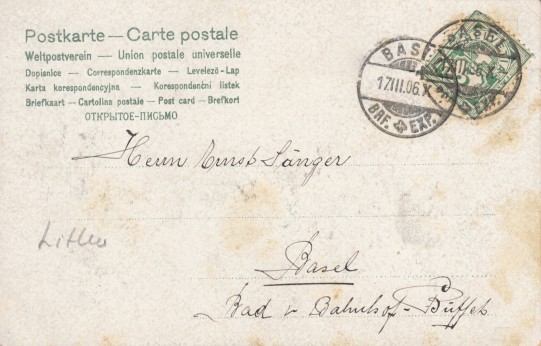 Postkarte — Carte postale
Weltpostverein — Union postale universelle
Dopisnice — Correspondenzkarte — Levelező-Lap
Karta korespondencyjna — Korespondenční listek
Briefkaart — Cartolina postale — Post card — Brefkort
ОТКРЫТОЕ-ПИСЬМО
BASEL
17.III.06.X
BRF. EXP.
Herrn Ernst Sänger
Basel
Bad. Bahnhof-Büffet